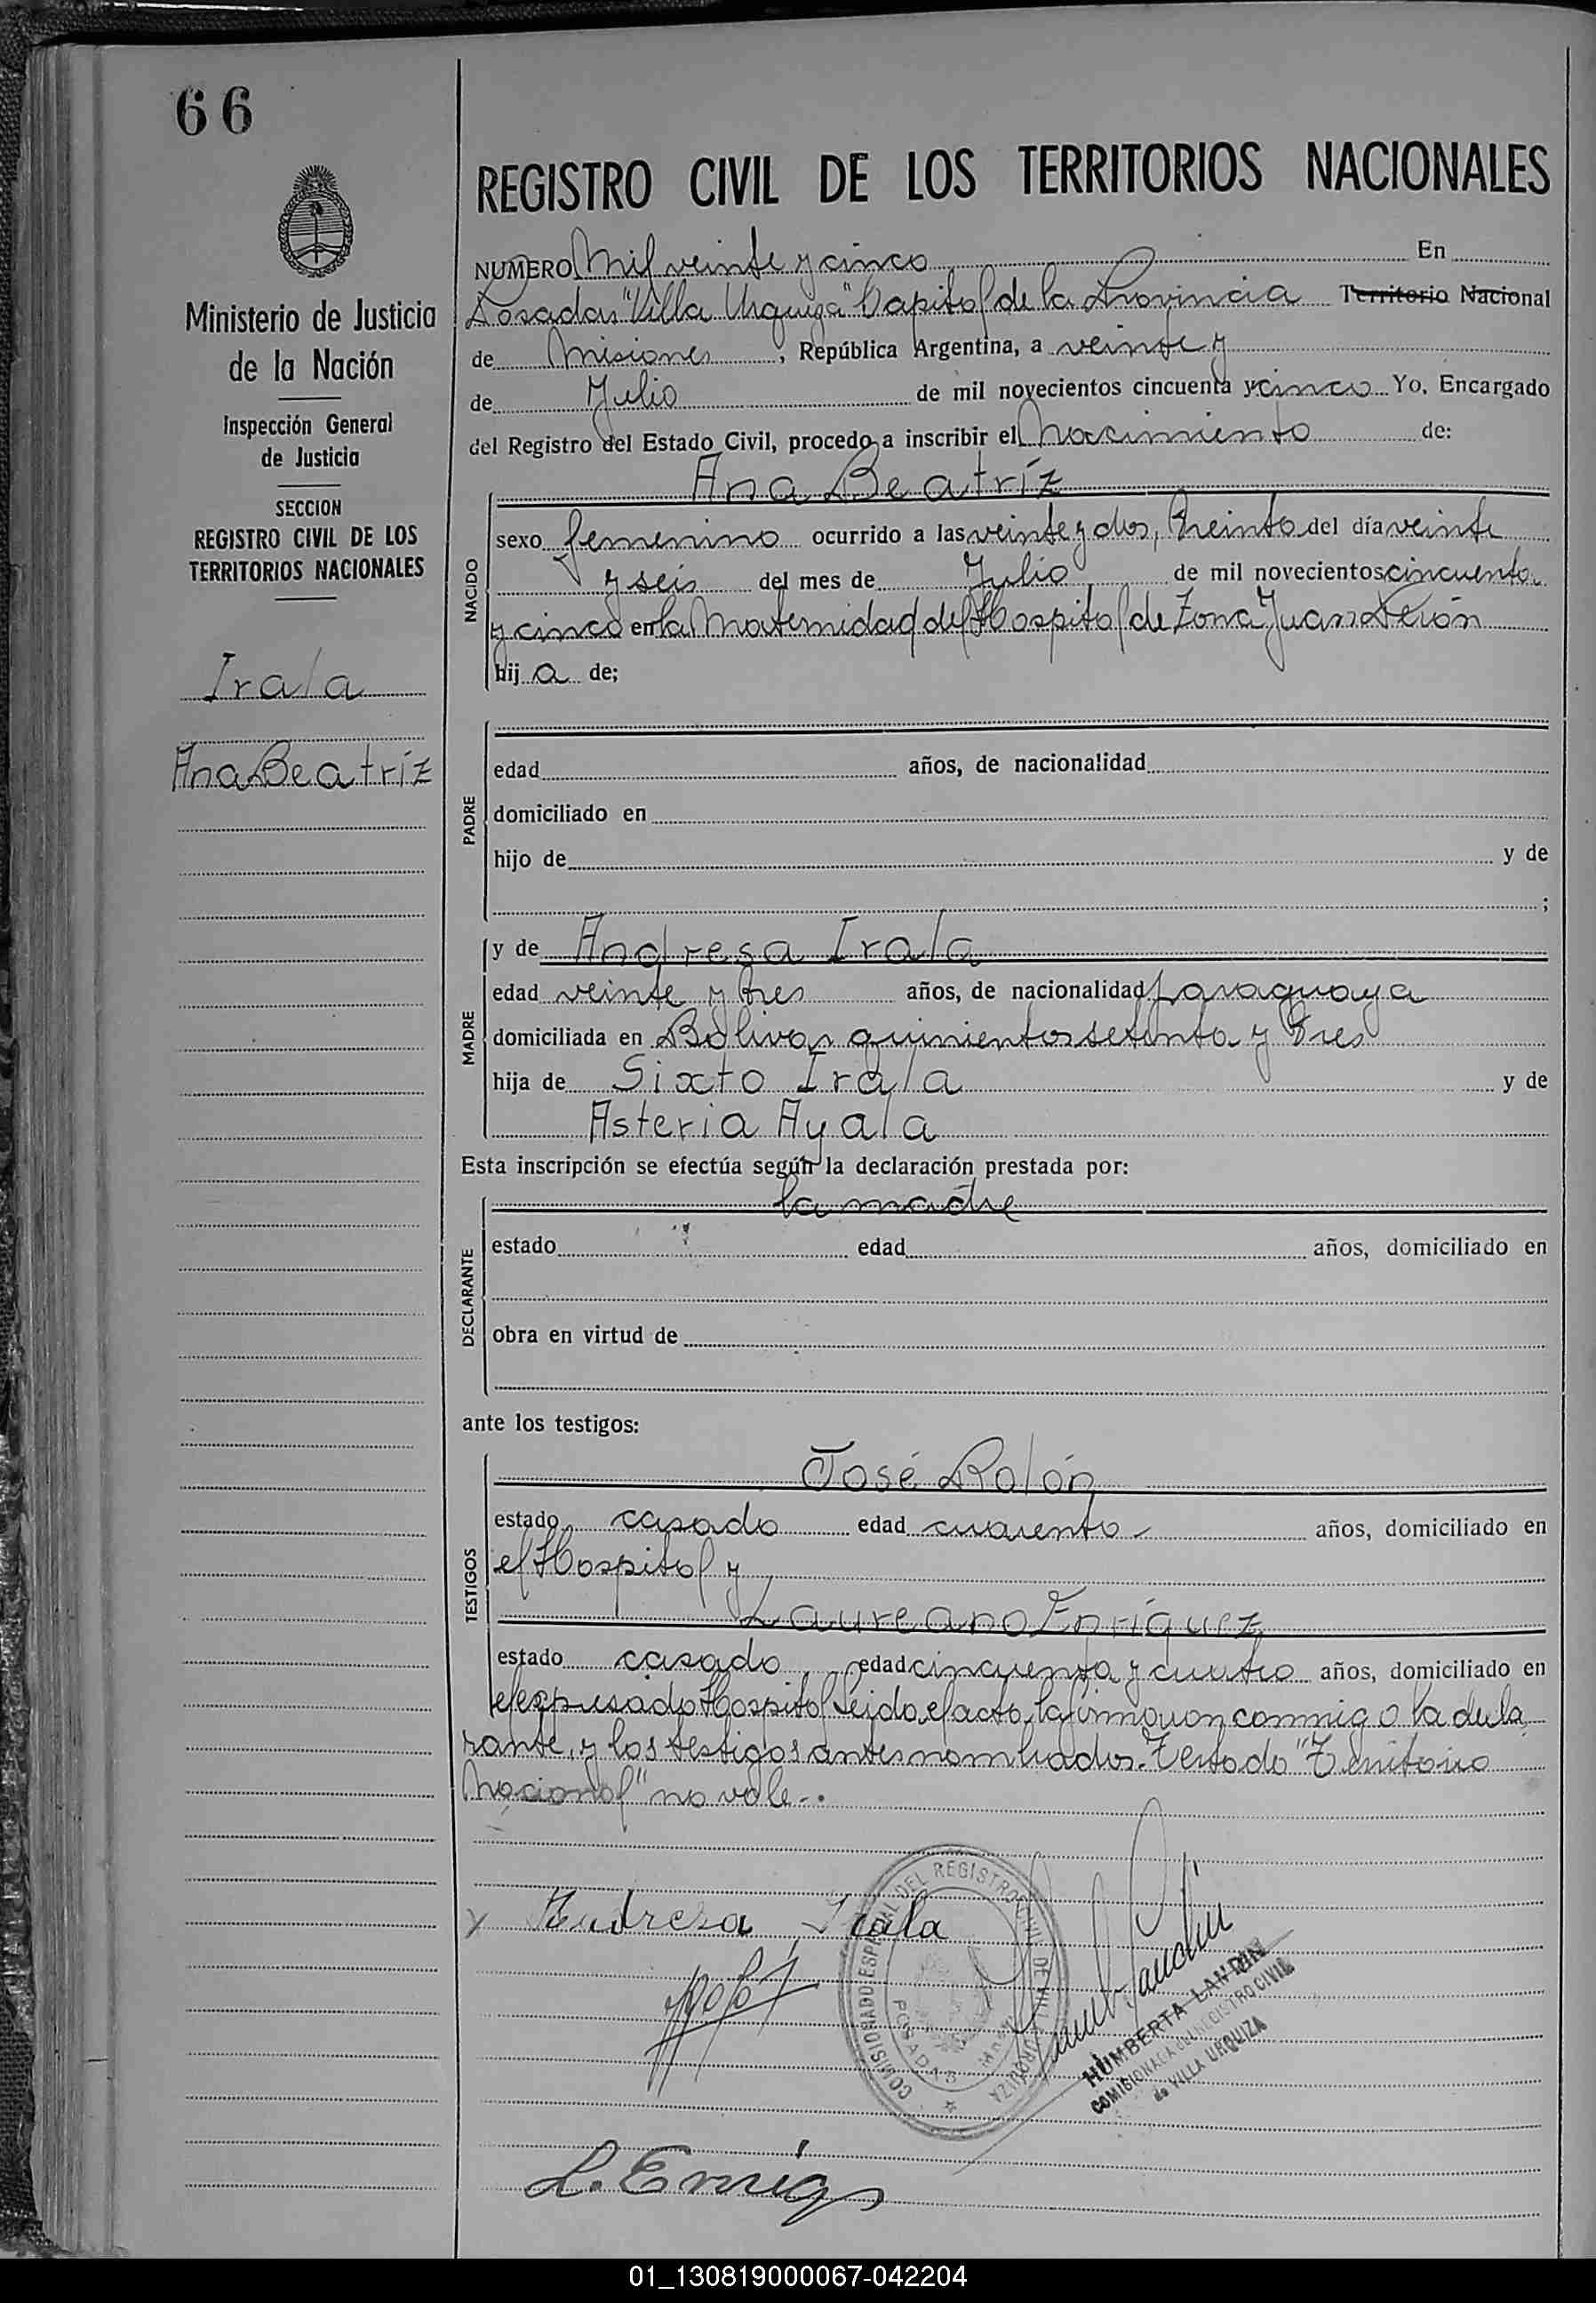 66
REGISTRO CIVIL DE LOS TERRITORIOS NACIONALES
Ministerio de Justicia
de la Nación
Inspección General
de Justicia
SECCION
REGISTRO CIVIL DE LOS
TERRITORIOS NACIONALES
Irala
Ana Beatríz
NUMERO Mil veinte y cinco En
Posadas "Villa Urquiza" Capital de la Provincia Territorio Nacional
de Misiones, República Argentina, a veinte y
de Julio de mil novecientos cincuenta y cinco Yo, Encargado
del Registro del Estado Civil, procedo a inscribir el Nacimiento de:
NACIDO
Ana Beatríz
sexo femenino ocurrido a las veinte y dos, treinta del día veinte
y seis del mes de Julio de mil novecientos cincuenta
y cinco en la Maternidad del Hospital de Zona Juan Perón
hija de;
PADRE
edad años, de nacionalidad
domiciliado en
hijo de y de
;
MADRE
y de Andresa Irala
edad veinte y tres años, de nacionalidad paraguaya
domiciliada en Bolivar quinientos setenta y tres
hija de Sixto Irala y de
Asteria Ayala
Esta inscripción se efectúa según la declaración prestada por:
DECLARANTE
la madre
estado edad años, domiciliado en
obra en virtud de
ante los testigos:
TESTIGOS
José Rolón
estado casado edad cuarenta años, domiciliado en
el Hospital y
Laureano Enríguez
estado casado edad cincuenta y cuatro años, domiciliado en
el expresado Hospital Leida el acta, la firmaron conmigo la decla
rante, y los testigos antes nombrados. Testado "Territorio
Nacional" no vale.-.
x Andresa Irala
COMISIONADO ESPECIAL DEL REGISTRO CIVIL DE VILLA URQUIZA
POSADAS
HUMBERTA LANDIN
COMISIONADA DEL REGISTRO CIVIL
de VILLA URQUIZA
L. Enrigz
01_130819000067-042204